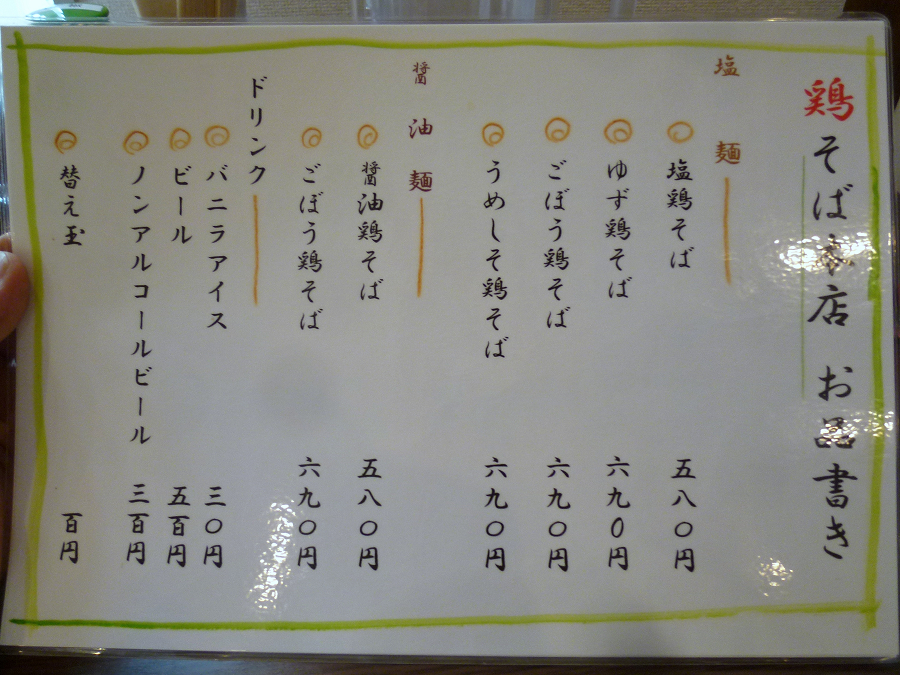 鶏そば本店 お品書き
塩 麺
塩鶏そば 五八〇円
ゆず鶏そば 六九〇円
ごぼう鶏そば 六九〇円
うめしそ鶏そば 六九〇円
醤油麺
醤油鶏そば 五八〇円
ごぼう鶏そば 六九〇円
ドリンク
バニラアイス 三〇円
ビール 五百円
ノンアルコールビール 三百円
替え玉 百円